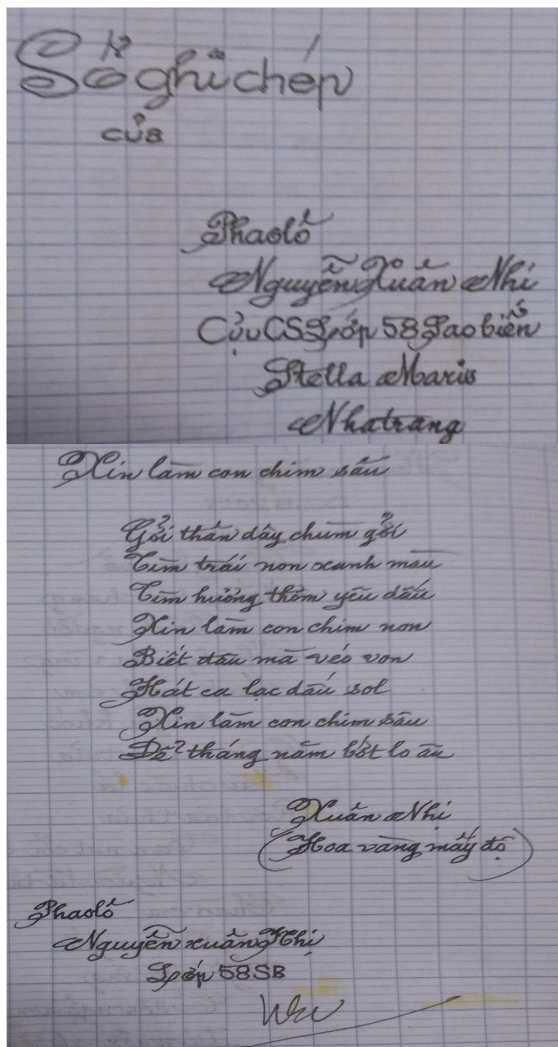 Sổ ghi chép
của
Phaolô
Nguyễn Xuân Nhi
Cựu CS Lớp 58 Sao biển
Stella Maris
Nhatrang
Xin làm con chim sâu
Gởi thân dây chùm gởi
Tìm trái non xanh màu
Tìm hương thơm yêu dấu
Xin làm con chim non
Biết đâu mà véo von
Hát ca lạc dấu sol
Xin làm con chim sâu
Để tháng năm bớt lo âu
Xuân Nhi
(Hoa vàng mấy độ)
Phaolô
Nguyễn xuân Nhi
Lớp 58SB